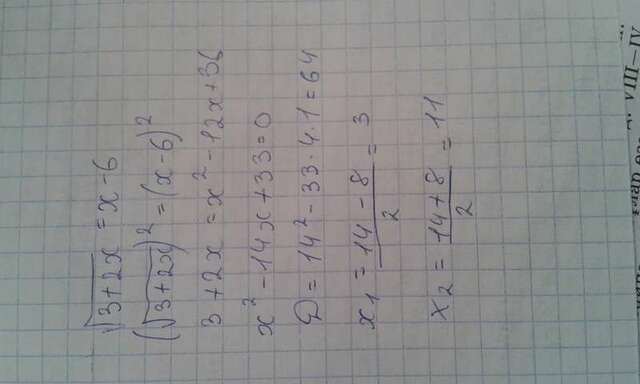 √(3+2x) = x-6
(√(3+2x))² = (x-6)²
3+2x = x²-12x+36
x²-14x+33=0
D = 14²-33·4·1=64
x₁ = (14-8)/2 = 3
x₂ = (14+8)/2 = 11
VIII–IV